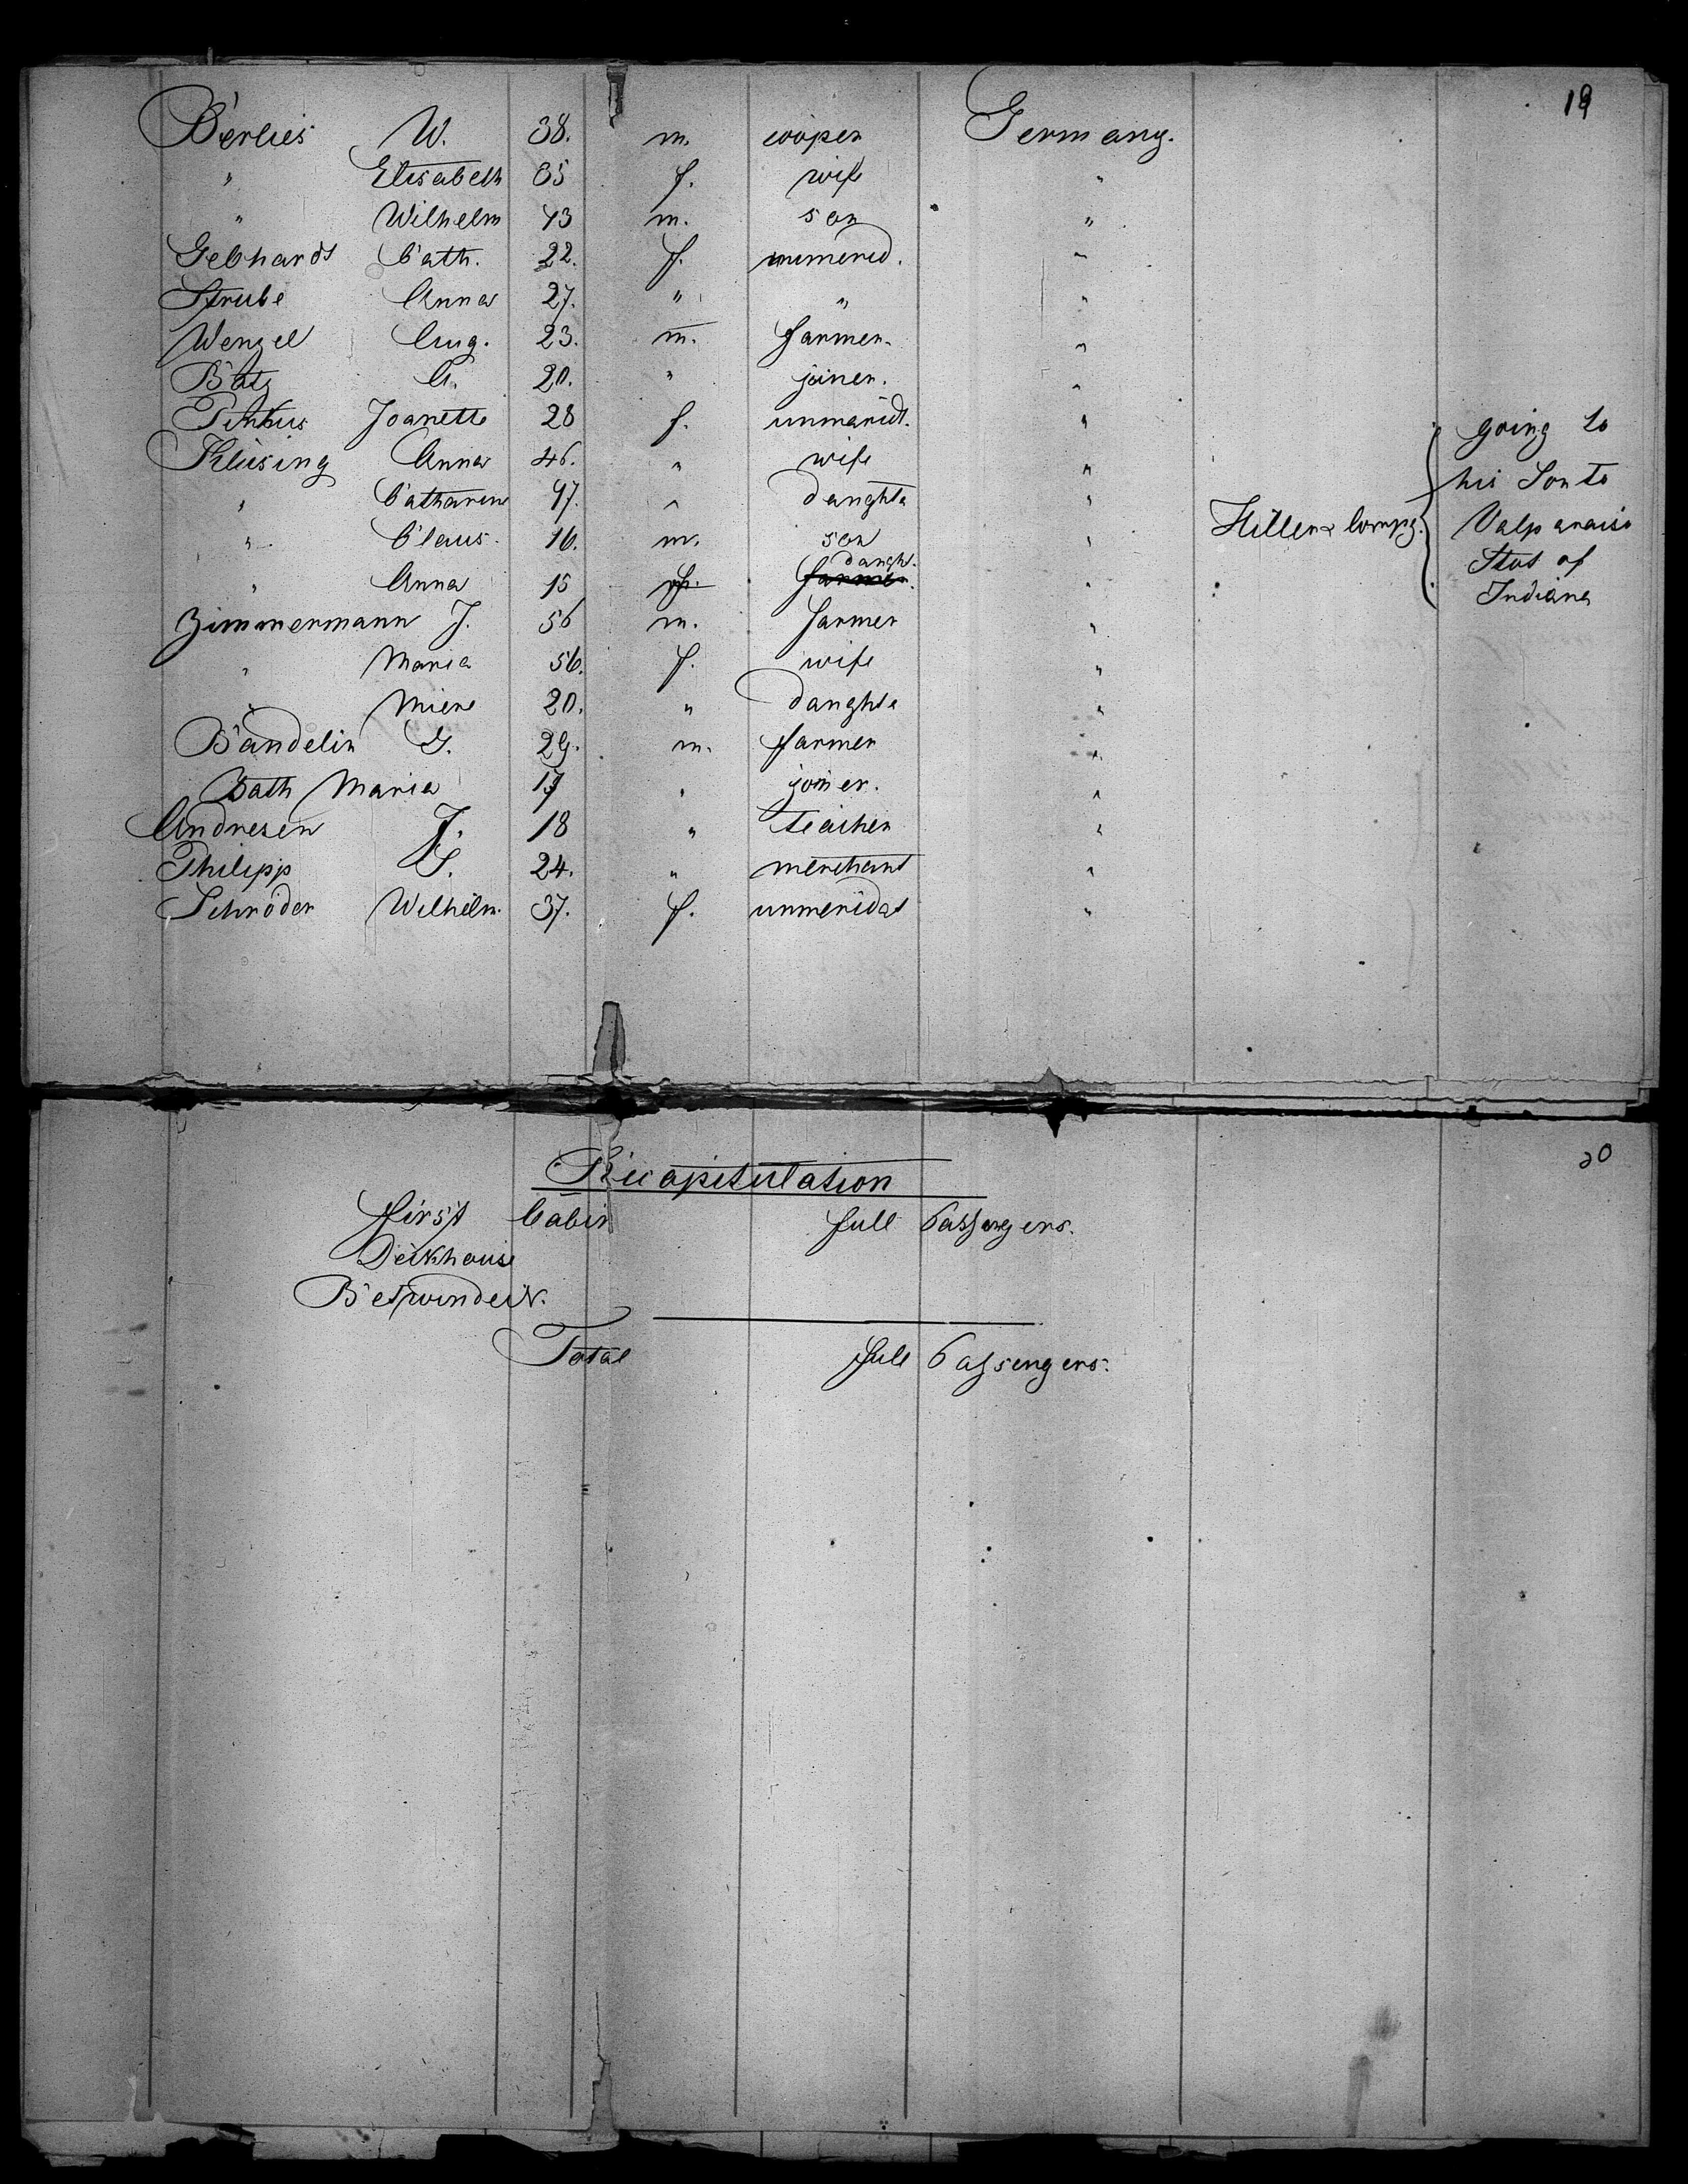 19
Berlies W. 38. m. cooper Germany.
" Elisabeth 35 f. wife "
" Wilhelm 13 m. son "
Gebhardt Cath. 22. f. "
Strube Anna 27. " " "
Wenzel Aug. 23. m. farmer. "
Batz A. 20. " joiner. "
Pinkus Joanette 28 f. unmaridt. "
Klüsing Anna 46. " wife "
" Catharine 17. " daughte "
" Claus. 16. m. son "
" Anna 15 f. daught. farmer. "
Hiller & Compg. going to
his Son to
Valparaiso
Stat of
Indiana
Zimmermann J. 56 m. farmer "
" Maria 56. f. wife "
" Miene 20. " daughte "
Bandelin G. 29. m. farmer "
Bath Maria 17 " joiner. "
Andresen J. 18 " teacher "
Philipp S. 24. " merchant "
Schröder Wilhelm. 37. f. unmeridat "
20
Recapitulation
first Cabin full Passengers.
Deckhouse
Betwindeck.
Total full Passengers.